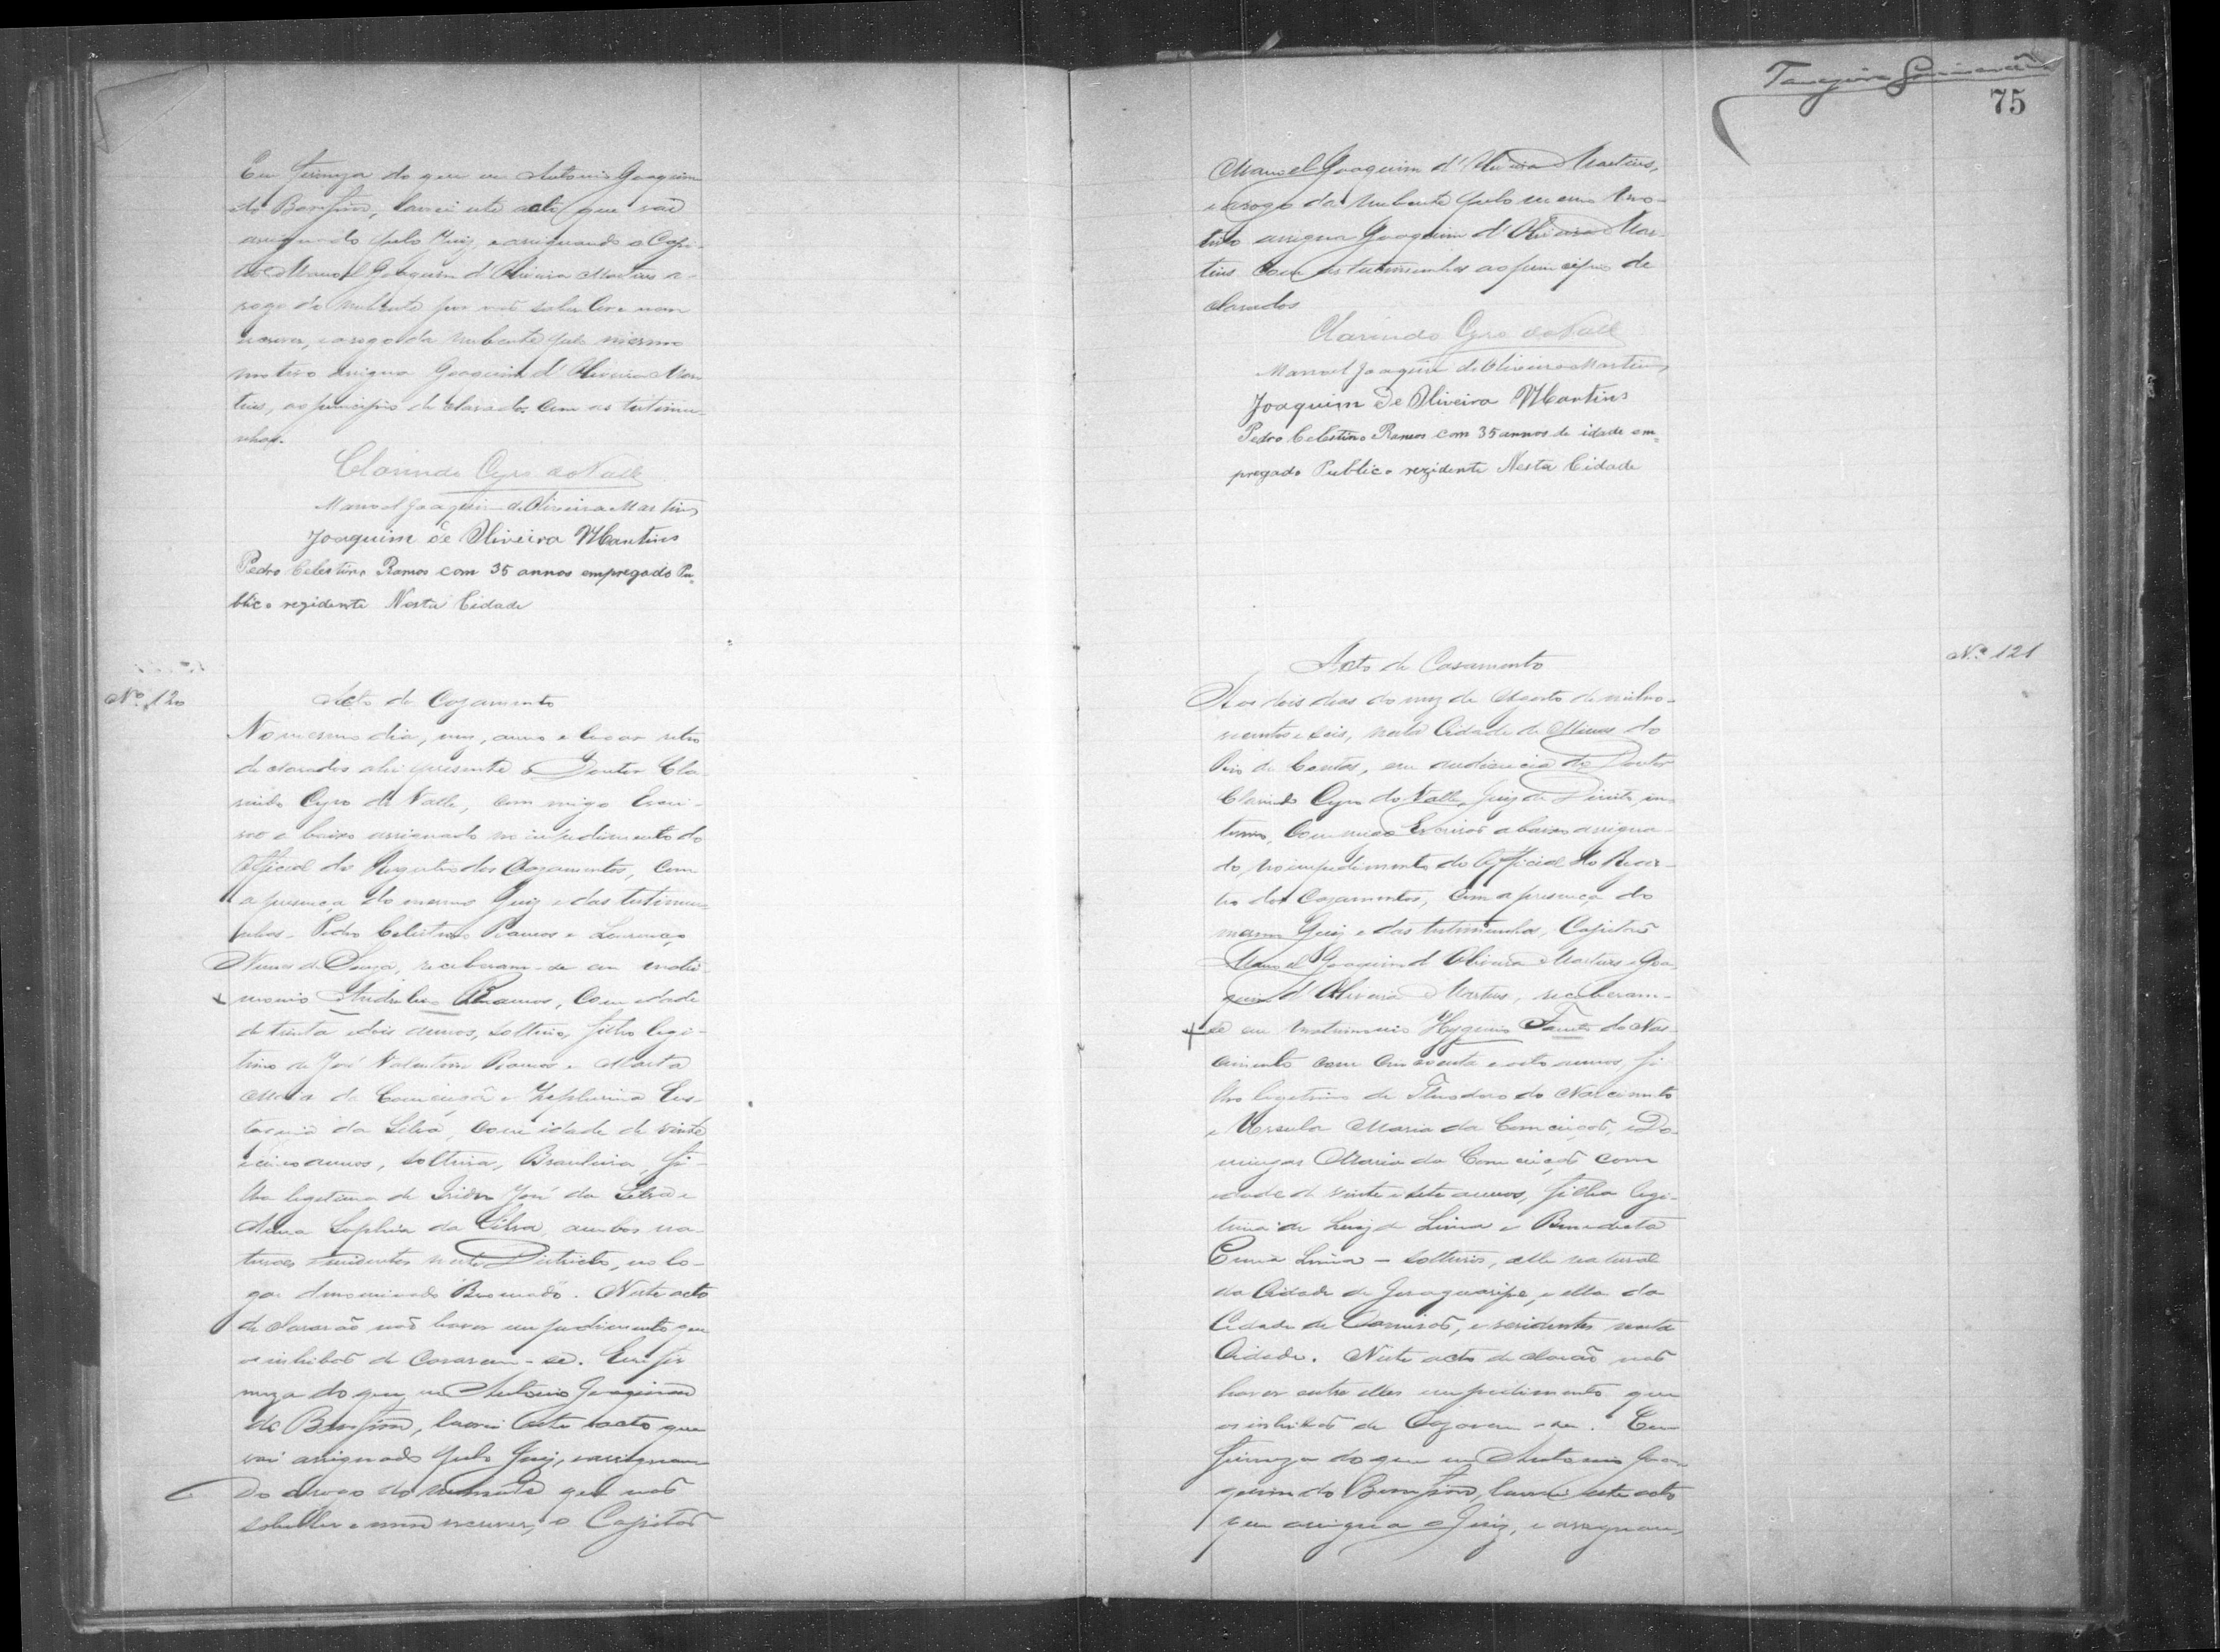 Em firmeza do que eu Antonio Joaquim
do Bomfim, lavrei este acto que vae
assignado pelo Juiz, e assignando o Capi-
tão Manoel Joaquim d'Oliveira Martins a
rogo do nubente por não saber ler e nem
escrever, e a rogo da nubente pelo mesmo
motivo assigna Joaquim d'Oliveira Mar
tins, ao principio declarado com as testimu-
nhas.
Clarindo Cyro do Valle
Manoel Joaquim de Oliveira Martins
Joaquim de Oliveira Martins
Pedro Celestino Ramos com 35 annos empregado Pu-
blico rezidente Nesta Cidade
Nº 120
Acto de Cazamento
No mesmo dia, mez, anno e lugar retro
declarados ahi presente o Doutor Cla
rindo Cyro do Valle, commigo Escri-
vão abaixo assignado no impedimento do
Official do Registro dos Cazamentos, com
a presença do mesmo Juiz e das testimu-
nhas - Pedro Celestino Ramos e Lourenço
Nunes de Souza, receberam-se em matri
monio Ramos, com idade
de trinta e dois annos, solteiro, filho legi-
timo de José Valentim Ramos e Marta
Maria da Conceição e Zephirina Eus-
da Silva, com idade de vinte
e cinco annos, solteira, Brazileira, fi-
lha legitima de Isidro José da Silva e
Anna Sophia da Silva, ambos na-
turaes e residentes neste Districto, no lo-
gar denominado Brumado. Neste acto
declararão não haver impedimento que
os inhibão de Cazarem-se. Em fir
meza do que, eu Antonio Joaquim
do Bomfim, lavrei este acto que
vai assignado pelo Juiz, e assignan
do a rogo do nubente que não
sabe ler e nem escrever, o Capitão
75
Manoel Joaquim d'Oliveira Martins,
e a rogo da nubente pelo mesmo mo-
tivo assigna Joaquim d'Oliveira Mar
tins com as testimunhas ao principio de
clarados
Clarindo Cyro do Valle
Manoel Joaquim de Oliveira Martins
Joaquim de Oliveira Martins
Pedro Celestino Ramos com 35 annos de idade em-
pregado Publico rezidente Nesta Cidade
Nº 121
Acto de Casamento
Aos dois dias do mez de Agosto de mil no-
vecentos e seis, nesta Cidade de Minas do
Rio de Contas, em audiencia do Doutor
Clarindo Cyro do Valle, Juiz de Direito, in-
terino, Commigo Escrivão abaixo assigna-
do, no impedimento do Official do Regis-
tro dos Cazamentos, com a presença do
mesmo Juiz e das testimunhas, Capitão
Manoel Joaquim d'Oliveira Martins e Joa
quim d'Oliveira Martins, receberam-
se em matrimonio Hygino do Nas-
cimento com cincoenta e oito annos, fi
lho legitimo de Theodoro do Nascimento
e Ursula Maria da Conceição, e Do-
mingas Maria da Conceição com
idade de vinte e sete annos, filha legi-
tima de Luiz de Lima e Benedicta
Lima - solteiros, elle natural
da Cidade de Jaguaripe, e ella da
Cidade de e residentes nesta
Cidade. Neste acto declarão não
haver entre elles impedimento que
os inhibão de Cazarem-se. Em
firmeza do que eu Antonio Joa-
quim do Bomfim, lavrei este acto
que assigna o Juiz, e assignan-